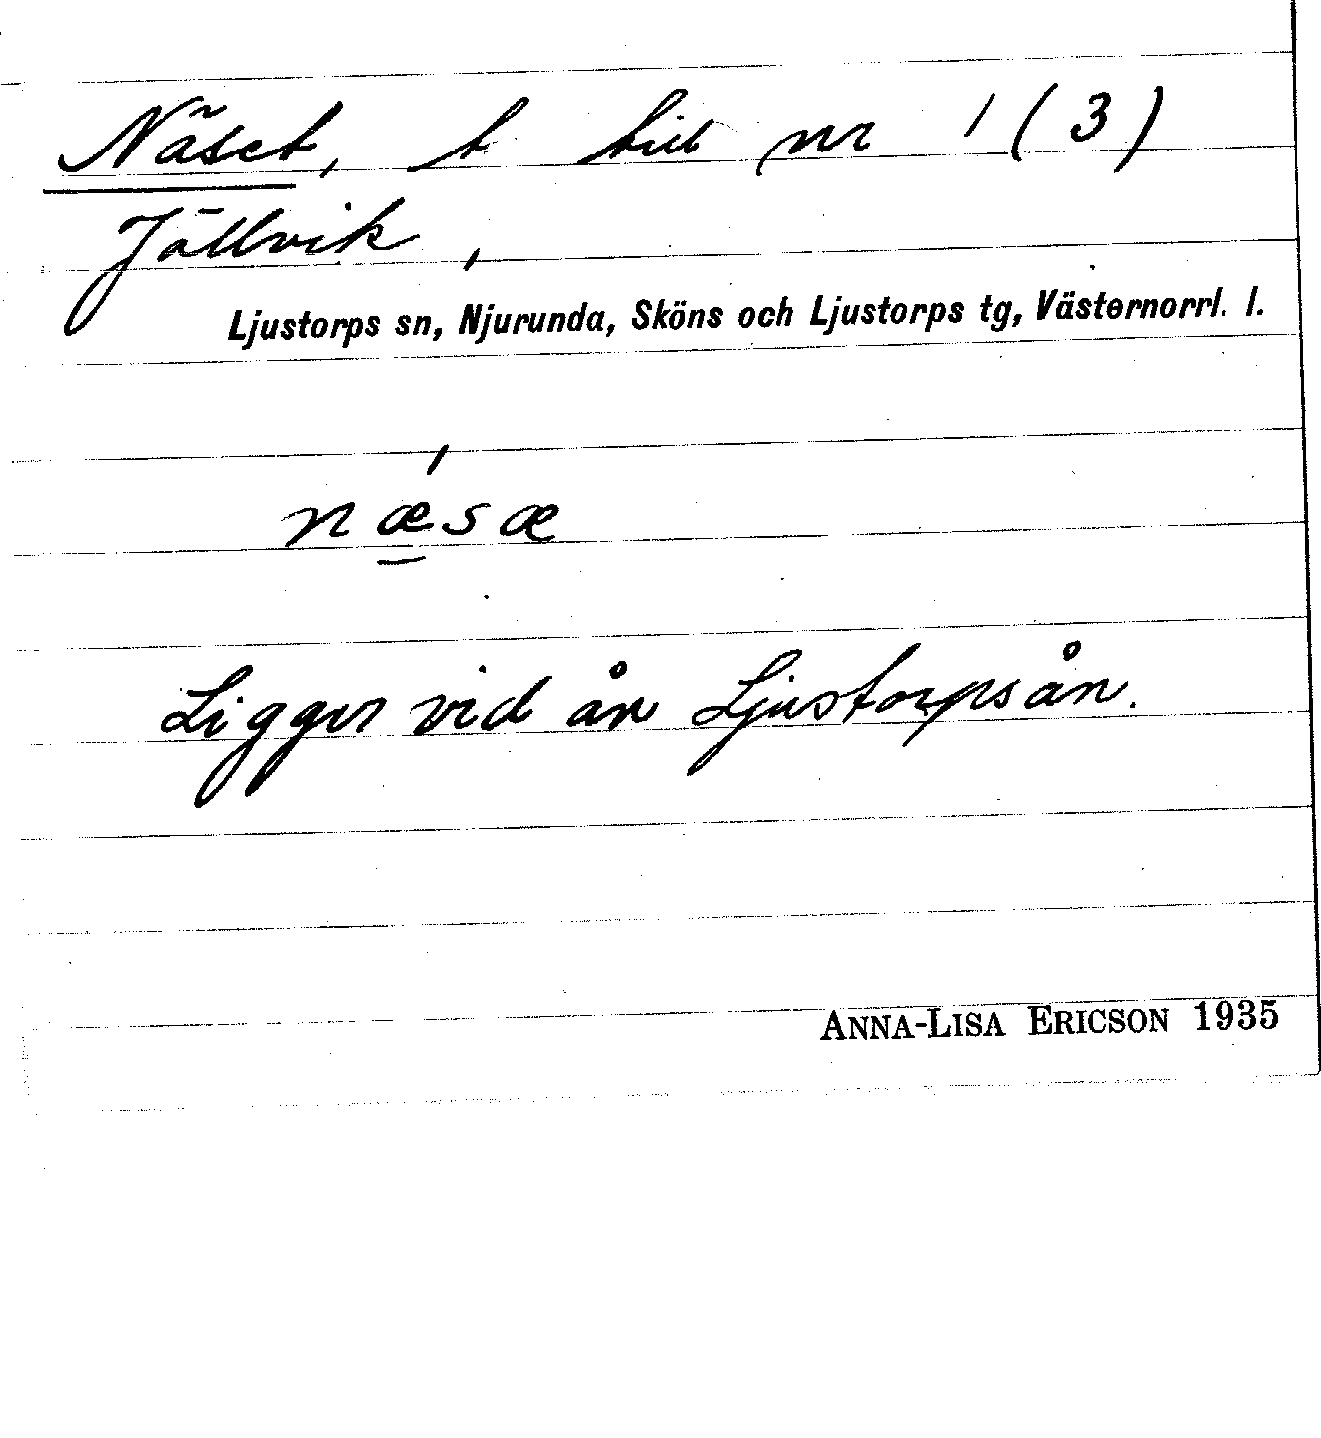 Näset, t till nr 1 (3)
Jällvik,
Ljustorps sn, Njurunda, Sköns och Ljustorps tg, Västernorrl. l.
nǽ̲sæ
Ligger vid ån Ljustorpsån.
ANNA-LISA ERICSON 1935